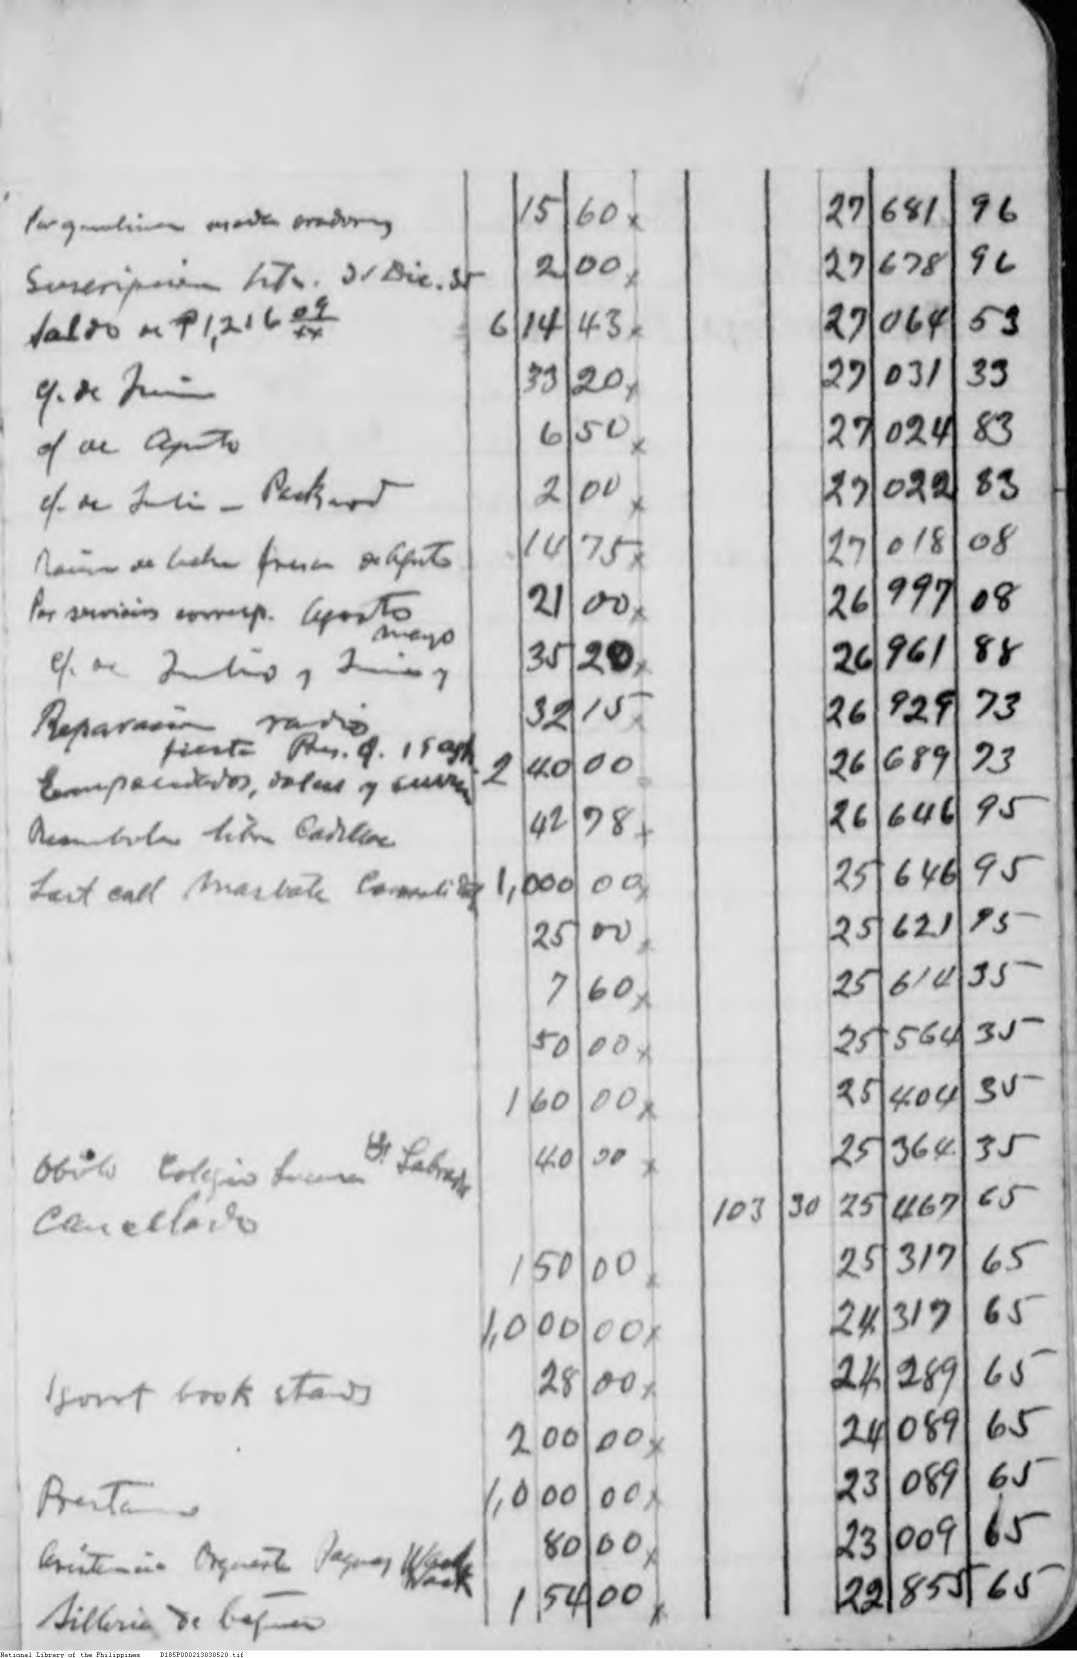 Por gasolina 15 60 x 27 681 96
Suscripción hta. 31 Dic. 35 2 00 x 27 678 96
Saldo de ₱1,216 09/xx 6 14 43 x 27 064 53
c/. de Junio 33 20 x 27 031 33
c/ de Agosto 6 50 x 27 024 83
c/. de Julio - Packard 2 00 x 27 022 83
de leche fresca de Agosto 14 75 x 27 018 08
Por servicios corresp. Agosto 21 00 x 26 997 08
mayo
c/. de Julio y Junio y 35 20 x 26 961 88
Reparación radio 32 15 x 26 929 73
fiesta Pres. Q. 19 Agt
2 40 00 26 689 73
Reembolso libre Cadillac 42 78 + 26 646 95
Last call Masbate Consolidated 1,000 00 x 25 646 95
25 00 x 25 621 95
7 60 x 25 614 35
50 00 x 25 564 35
1 60 00 x 25 404 35
Obolo Colegio Lucena 40 00 x 25 364 35
Cancellado 103 30 25 467 65
1 50 00 x 25 317 65
1,000 00 x 24 317 65
book stands 28 00 x 24 289 65
2 00 00 x 24 089 65
Prestamo 1,000 00 x 23 089 65
Asistencia Orquesta 80 00 x 23 009 65
Silleria de 1 54 00 x 22 855 65
National Library of the Philippines D185P000213030520.tif